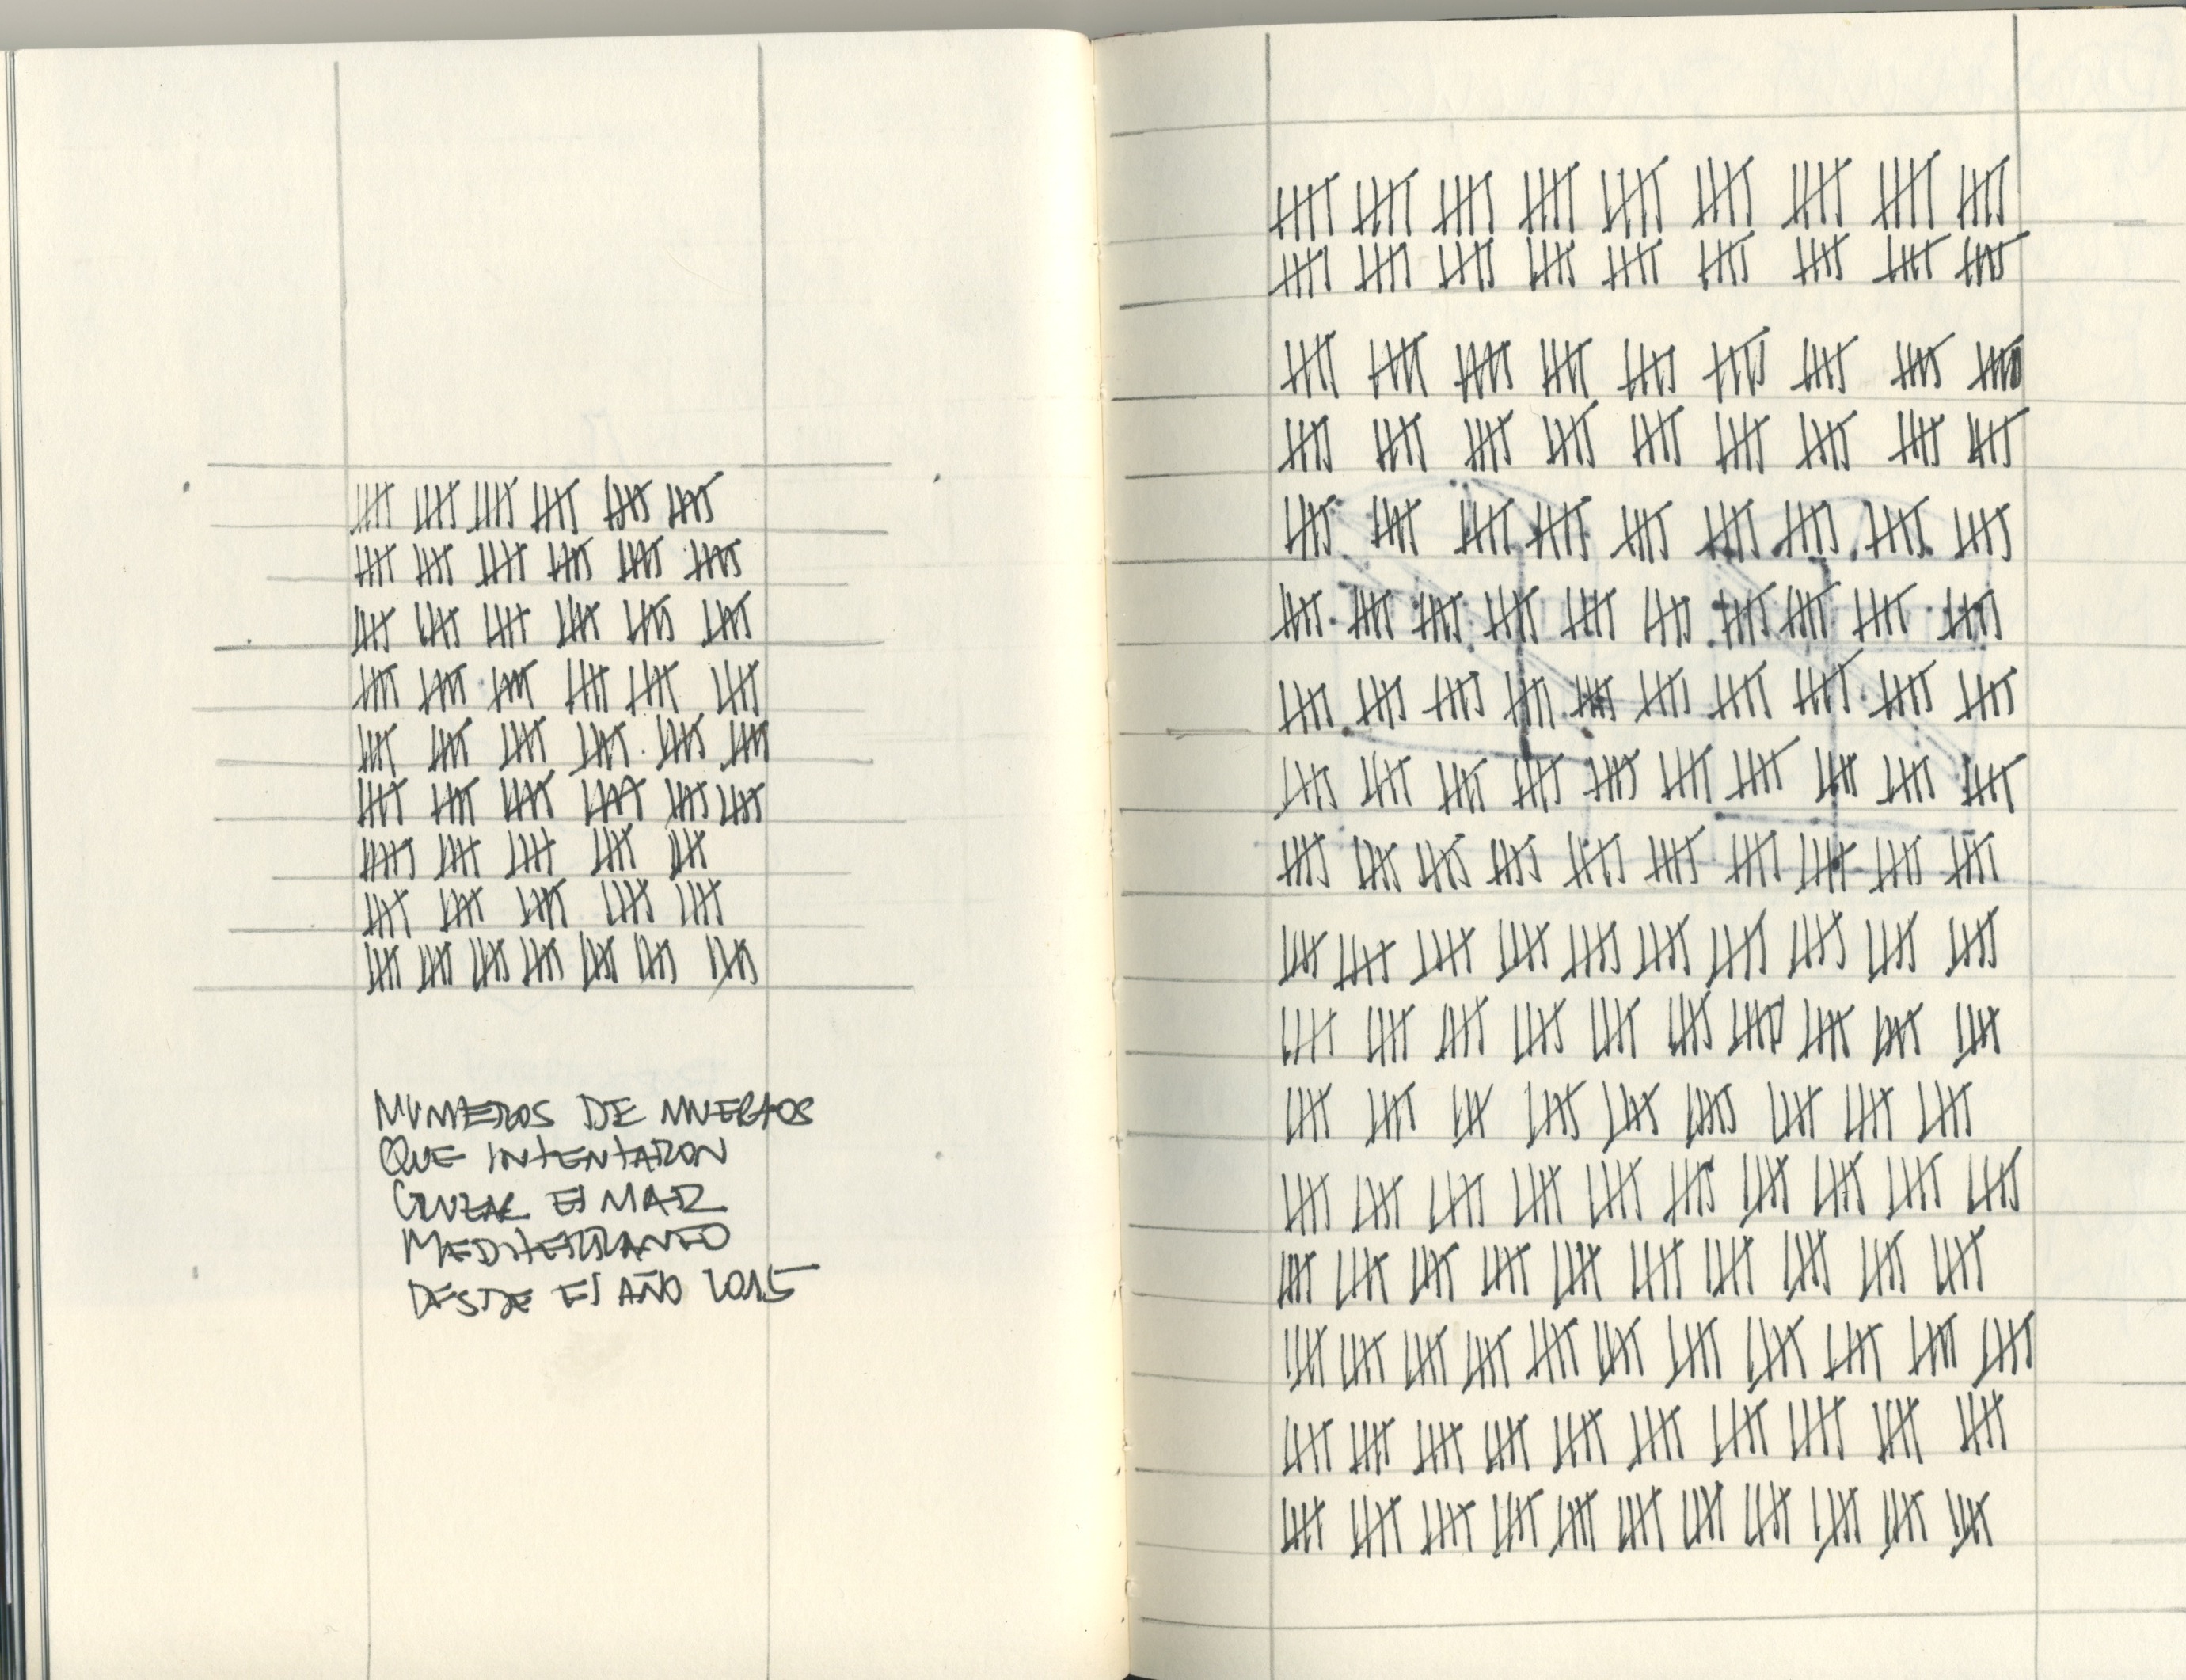 NÚMEROS DE MUERTOS
QUE INTENTARON
CRUZAR EL MAR
MEDITERRANEO
DESDE EL AÑO 2015